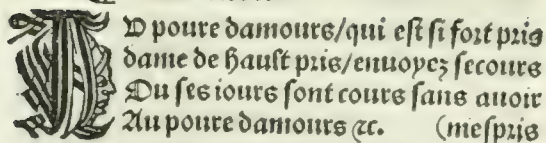 AV poure damours/qui eſt ſi fort pris
dame de hault pris/enuoyez ſecours
Ou ſes iours ſont cours ſans auoir
Au poure damours ⁊c. (meſpris